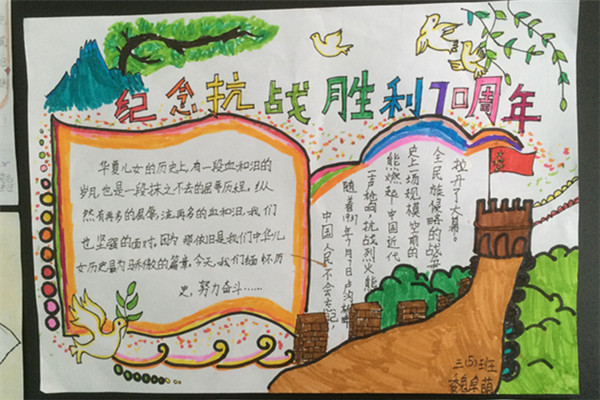 纪念抗战胜利70周年
华夏儿女的历史上,有一段血和泪的
岁月,也是一段抹之不去的屈辱历程,纵
然有再多的屈辱,流再多的血和泪,我们
也坚强的面对,因为那依旧是我们中华儿
女历史最为骄傲的篇章,今天,我们缅怀历
史,努力奋斗……
中国人民不会忘记,
随着1937年7月7日卢沟桥畔
一声枪响,抗战烈火熊
熊燃起,中国近代
史上一场规模空前的
全民族侵略的战争
拉开了大幕。
三(5)班